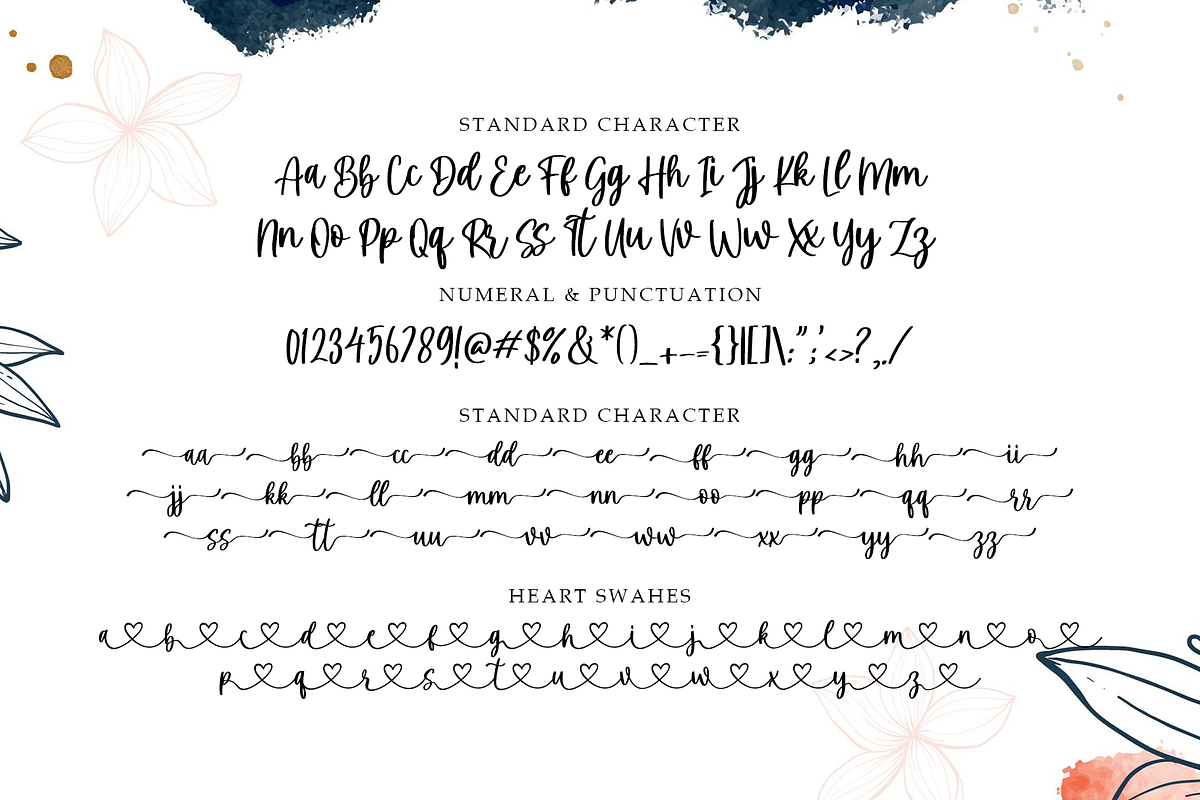 STANDARD CHARACTER
Aa Bb Cc Dd Ee Ff Gg Hh Ii Jj Kk Ll Mm
Nn Oo Pp Qq Rr Ss Tt Uu Vv Ww Xx Yy Zz
NUMERAL & PUNCTUATION
0123456789!@#$%&*()_+-={}|[]\:";'<>?,./
STANDARD CHARACTER
aa bb cc dd ee ff gg hh ii
jj kk ll mm nn oo pp qq rr
ss tt uu vv ww xx yy zz
HEART SWAHES
a♡b♡c♡d♡e♡f♡g♡h♡i♡j♡k♡l♡m♡n♡o♡
p♡q♡r♡s♡t♡u♡v♡w♡x♡y♡z♡